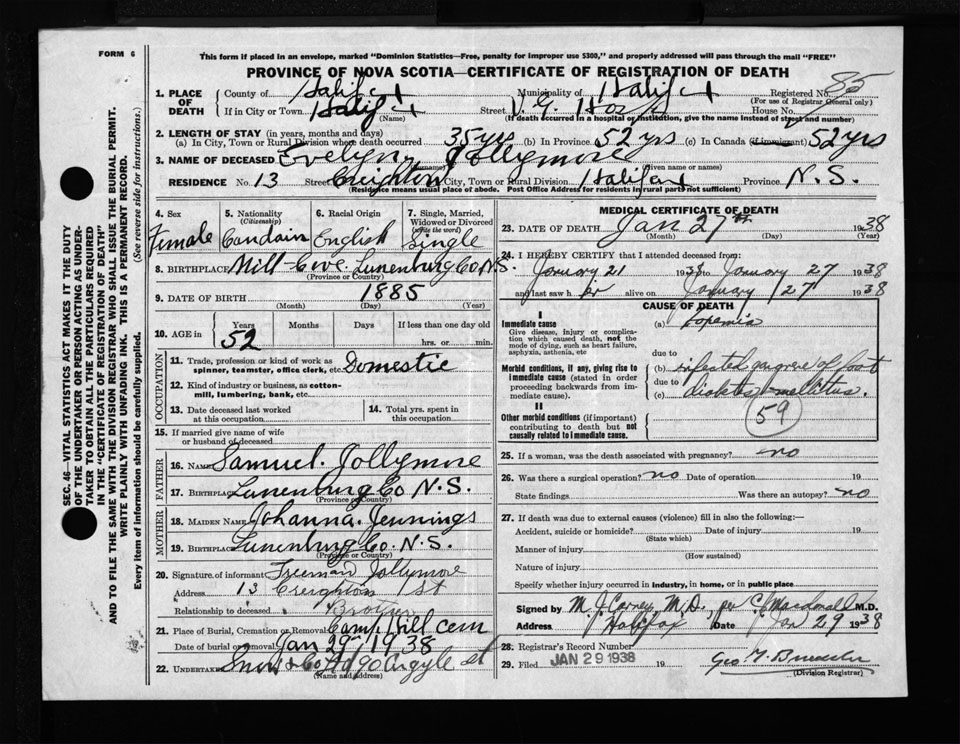 FORM 6
This form if placed in an envelope, marked "Dominion Statistics—Free, penalty for improper use $300," and properly addressed will pass through the mail "FREE"
PROVINCE OF NOVA SCOTIA—CERTIFICATE OF REGISTRATION OF DEATH
1. PLACE OF DEATH County of Halifax Municipality of Halifax Registered No. 85
(For use of Registrar General only)
If in City or Town Halifax Street V. G. Hosp House No.
(Name) (If death occurred in a hospital or institution, give the name instead of street and number)
2. LENGTH OF STAY (in years, months and days)
(a) In City, Town or Rural Division where death occurred 35 yrs (b) In Province 52 yrs (c) In Canada (if immigrant) 52 yrs
3. NAME OF DECEASED Evelyn Jollymore
(given name or names)
RESIDENCE No. 13 Street Creighton City, Town or Rural Division Halifax Province N.S.
(Residence means usual place of abode. Post Office Address for residents in rural parts not sufficient)
4. Sex Female
5. Nationality (Citizenship) Candain
6. Racial Origin English
7. Single, Married, Widowed or Divorced (write the word) Single
8. BIRTHPLACE Mill Cove. Lunenburg Co N.S.
(Province or Country)
9. DATE OF BIRTH 1885
(Month) (Day) (Year)
10. AGE in Years 52 Months Days If less than one day old
hrs. or min.
OCCUPATION
11. Trade, profession or kind of work as spinner, teamster, office clerk, etc. Domestic
12. Kind of industry or business, as cotton-mill, lumbering, bank, etc.
13. Date deceased last worked at this occupation
14. Total yrs. spent in this occupation
15. If married give name of wife or husband of deceased
FATHER
16. NAME Samuel. Jollymore
17. BIRTHPLACE Lunenburg Co N.S.
(Province or Country)
MOTHER
18. MAIDEN NAME Johanna. Jennings
19. BIRTHPLACE Lunenburg Co. N.S.
(Province or Country)
20. Signature of informant Freeman Jollymore
Address 13 Creighton St
Relationship to deceased Brother
21. Place of Burial, Cremation or Removal Camp Hill Cem
Date of burial or removal Jan 29th 1938
22. UNDERTAKER Snow & Co Ltd 90 Argyle St
(Name and address)
MEDICAL CERTIFICATE OF DEATH
23. DATE OF DEATH Jan 27th 1938
(Month) (Day) (Year)
24. I HEREBY CERTIFY that I attended deceased from:
January 21 1938 to January 27 1938
and last saw h er alive on January 27 1938
CAUSE OF DEATH
I
Immediate cause
Give disease, injury or complication which caused death, not the mode of dying, such as heart failure, asphyxia, asthenia, etc
(a) Toxemia
due to
Morbid conditions, if any, giving rise to immediate cause (stated in order proceeding backwards from immediate cause).
(b) infected gangrene of foot
due to
(c) diabetes mellitus.
59
II
Other morbid conditions (if important) contributing to death but not causally related to immediate cause.
25. If a woman, was the death associated with pregnancy? no
26. Was there a surgical operation? no Date of operation 19
State findings Was there an autopsy? no
27. If death was due to external causes (violence) fill in also the following:—
Accident, suicide or homicide? Date of injury 19
(State which)
Manner of injury
(How sustained)
Nature of injury
Specify whether injury occurred in industry, in home, or in public place
Signed by M. J. Carney, M.D., per C. Macdonald M.D.
Address Halifax Date Jan 29 1938
28. Registrar's Record Number
29. Filed JAN 29 1938 19
(Division Registrar)
SEC. 46—VITAL STATISTICS ACT MAKES IT THE DUTY
OF THE UNDERTAKER OR PERSON ACTING AS UNDER-
TAKER TO OBTAIN ALL THE PARTICULARS REQUIRED
IN THE "CERTIFICATE OF REGISTRATION OF DEATH"
AND TO FILE THE SAME WITH THE DIVISION REGISTRAR WHO SHALL ISSUE THE BURIAL PERMIT.
WRITE PLAINLY WITH UNFADING INK. THIS IS A PERMANENT RECORD.
Every item of information should be carefully supplied. (See reverse side for instructions.)